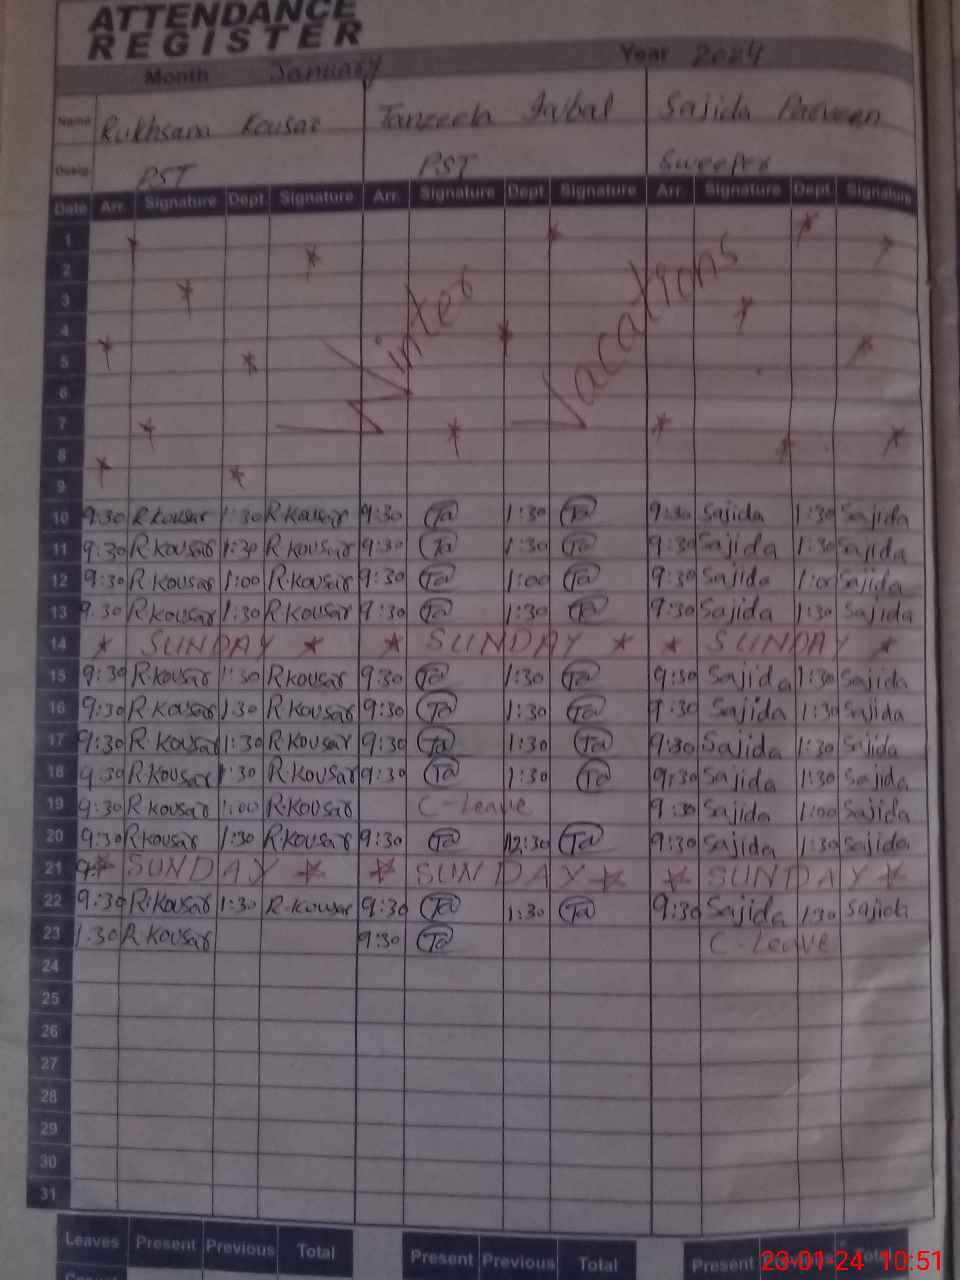 ATTENDANCE
REGISTER
Month January Year 2024
Name Rukhsana Kousar Tanzeela Iqbal Sajida Parveen
Desig. PST PST Sweeper
Date Arr. Signature Dept Signature Arr. Signature Dept Signature Arr. Signature Dept Signature
1
2
3
4
5
6
7
8
9
Winter Vacations
10 9:30 R.Kousar 1:30 R.Kousar 9:30 Ta 1:30 Ta 9:30 Sajida 1:30 Sajida
11 9:30 R.Kousar 1:30 R.Kousar 9:30 Ta 1:30 Ta 9:30 Sajida 1:30 Sajida
12 9:30 R.Kousar 1:00 R.Kousar 9:30 Ta 1:00 Ta 9:30 Sajida 1:00 Sajida
13 9:30 R.Kousar 1:30 R.Kousar 9:30 Ta 1:30 Ta 9:30 Sajida 1:30 Sajida
14 * SUNDAY * * SUNDAY * * SUNDAY *
15 9:30 R.Kousar 1:30 R.Kousar 9:30 Ta 1:30 Ta 9:30 Sajida 1:30 Sajida
16 9:30 R.Kousar 1:30 R.Kousar 9:30 Ta 1:30 Ta 9:30 Sajida 1:30 Sajida
17 9:30 R.Kousar 1:30 R.Kousar 9:30 Ta 1:30 Ta 9:30 Sajida 1:30 Sajida
18 9:30 R.Kousar 1:30 R.Kousar 9:30 Ta 1:30 Ta 9:30 Sajida 1:30 Sajida
19 9:30 R.Kousar 1:00 R.Kousar C-Leave 9:30 Sajida 1:00 Sajida
20 9:30 R.Kousar 1:30 R.Kousar 9:30 Ta 12:30 Ta 9:30 Sajida 1:30 Sajida
21 * SUNDAY * * SUNDAY * * SUNDAY *
22 9:30 R.Kousar 1:30 R.Kousar 9:30 Ta 1:30 Ta 9:30 Sajida 1:30 Sajida
23 1:30 R.Kousar 9:30 Ta C-Leave
24
25
26
27
28
29
30
31
Leaves Present Previous Total Present Previous Total Present Previous Total
23-01-24 10:51